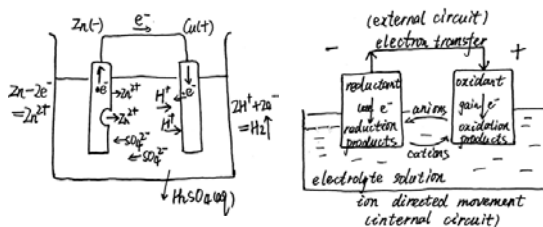 Zn(-)
e⁻
Cu(+)
Zn-2e⁻
=Zn²⁺
e⁻
Zn²⁺
Zn²⁺
SO₄²⁻
SO₄²⁻
H⁺
H⁺
e⁻
2H⁺+2e⁻
=H₂↑
H₂SO₄(aq)
(external circuit)
electron transfer
-
+
reductant
e⁻
reduction
products
oxidant
gain e⁻
oxidation
products
anions
cations
electrolyte solution
ion directed movement
(internal circuit)